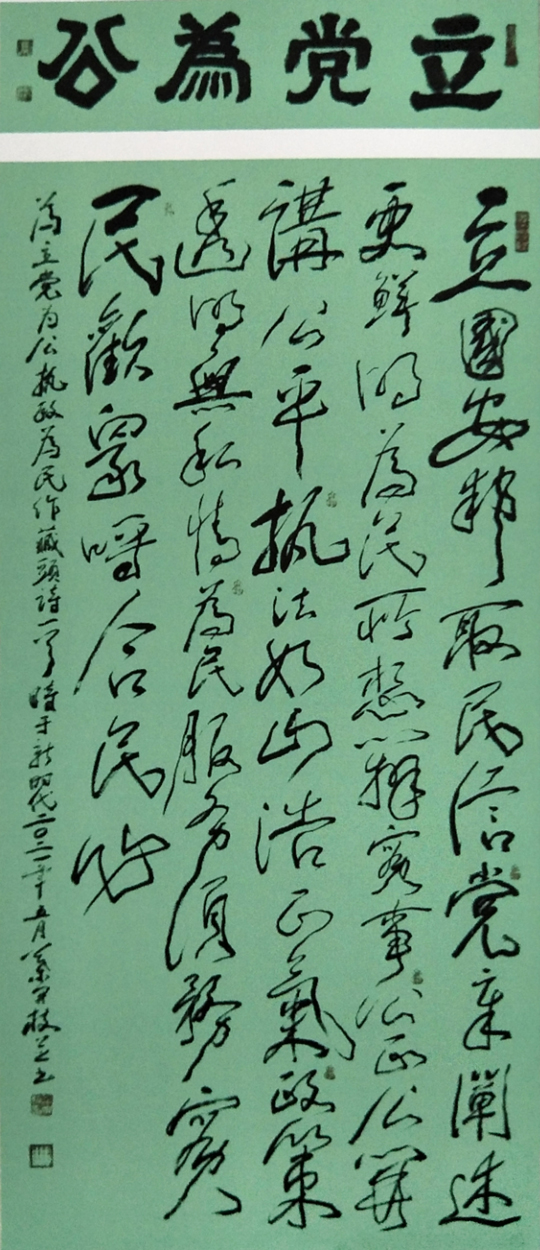 立党為公
立國安邦取民信党章闡述
更鮮明為民所想辦實事公正公開
講公平执法如山浩正氣政策
透明無私情為民服务須務實
民歡眾合民
為立党为公执政為民作藏頭詩一首時于新時代二〇二一年五月